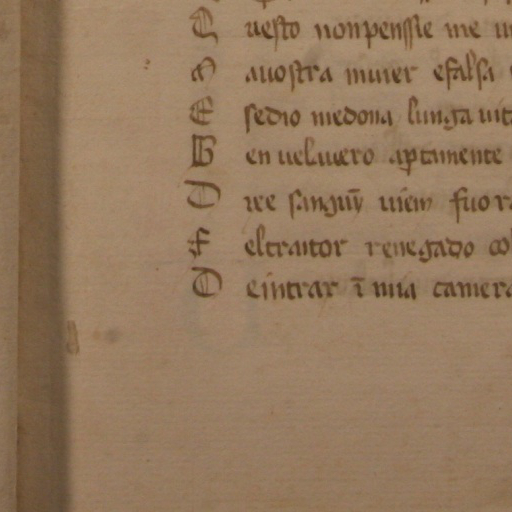 C uesto non pensse me
M a uostra muier e falsa
E se dio me dona lunga uita
B en uel uiero aptamente
D ee sanguȳ uiem fuora
E el traitor renegado
D e intrar ī mia camera